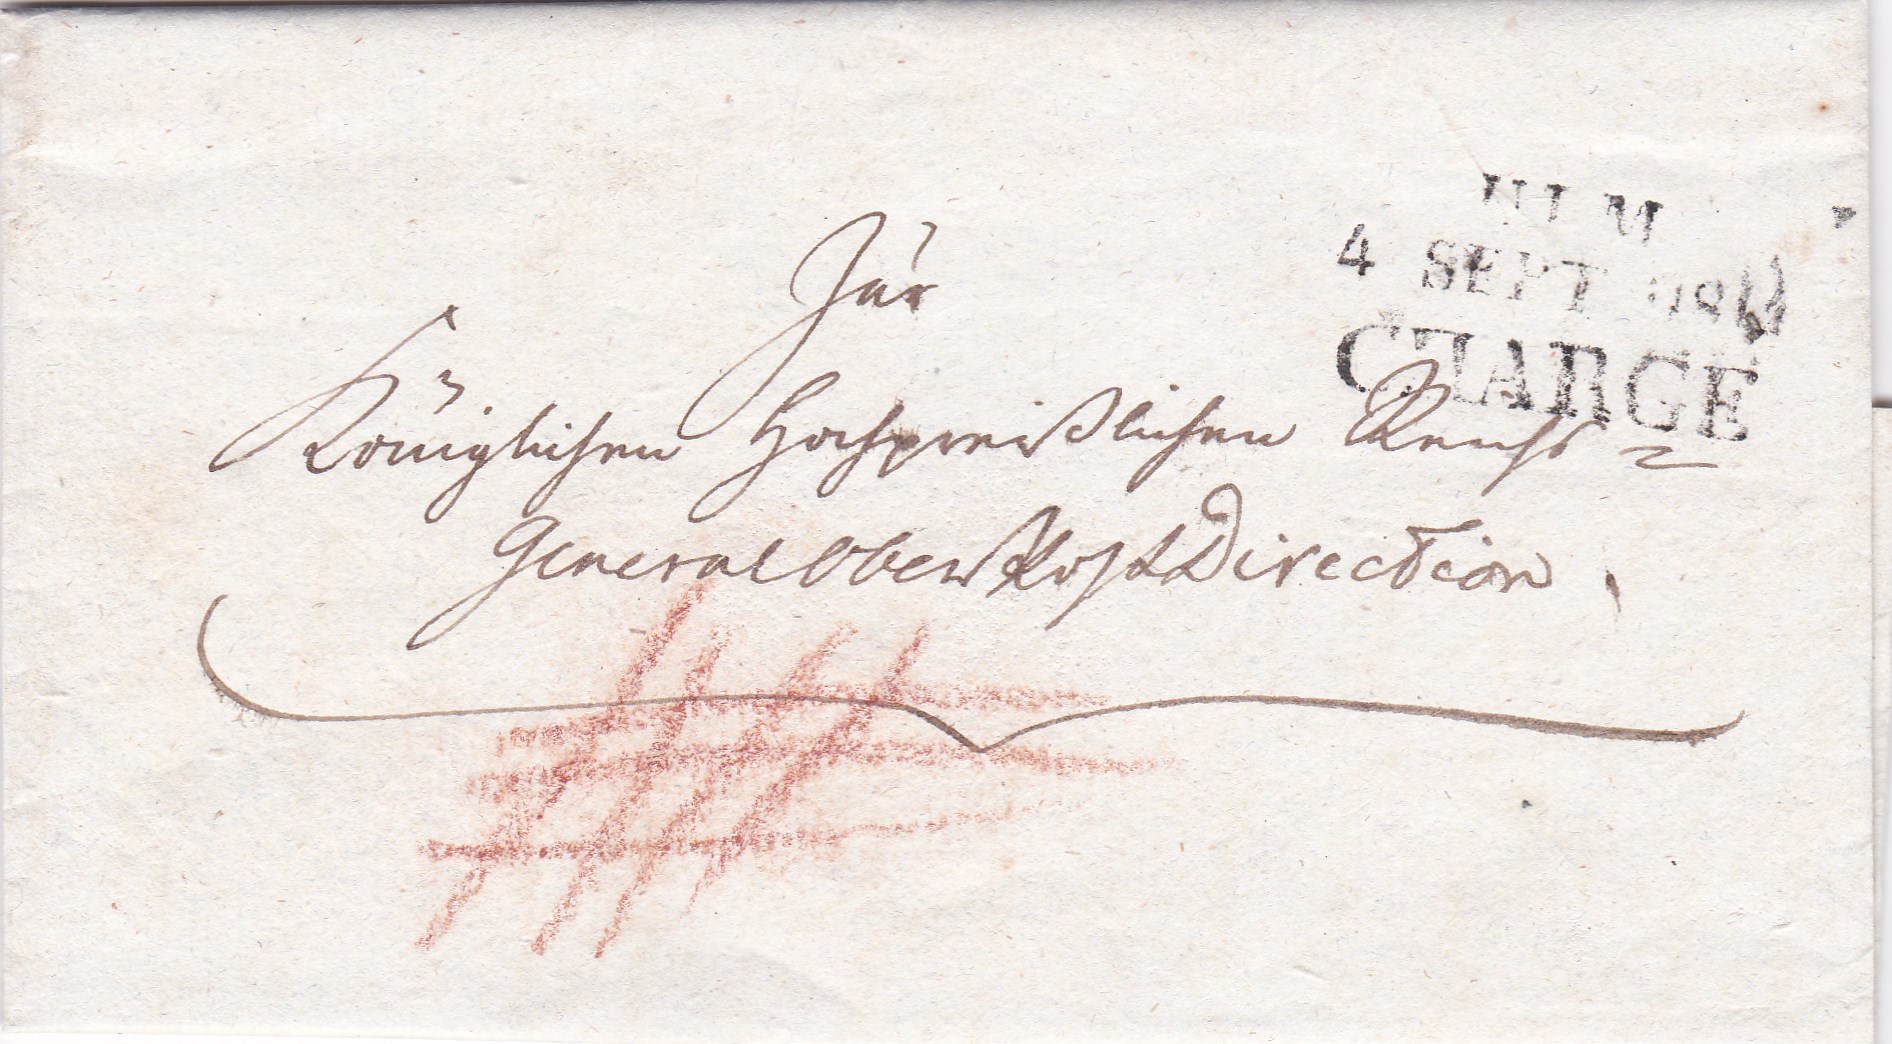 ULM
4 SEPT
CHARGE
Zur
Königlichen Hochpreißlichen Reichs=
General Ober Post Direction.